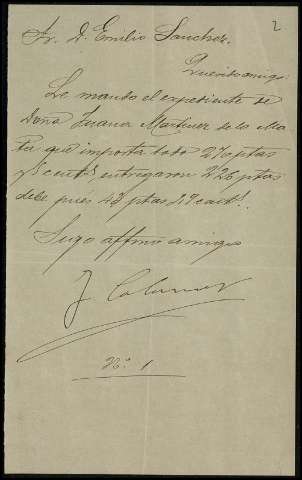 2
Sr. D. Emilio Sanchez.
Querido amigo:
Le mando el expediente de
Doña Juana Martinez de la Ma-
ta que importa todo 270 ptas
entregaron 226 ptas
debe pues 43 ptas 49 cents.
Suyo affmo amigo
J.
Nº 1